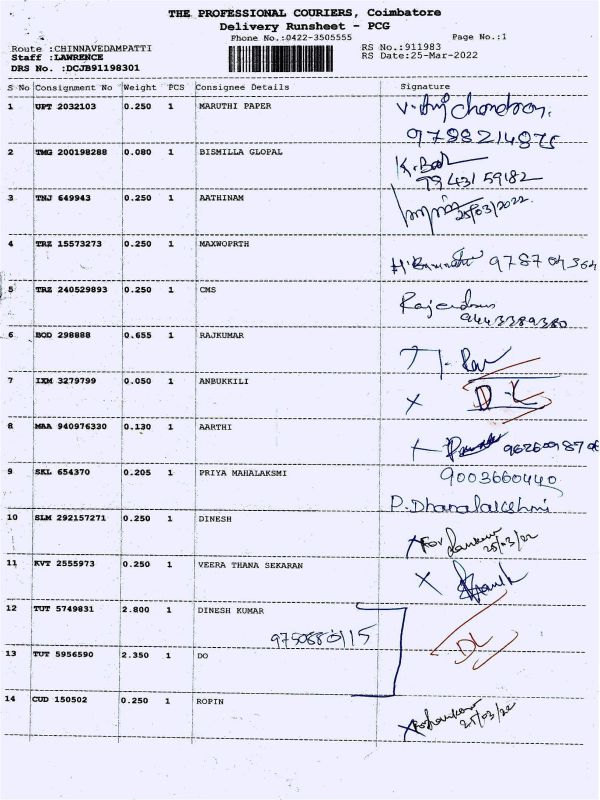 THE PROFESSIONAL COURIERS, Coimbatore
Delivery Runsheet - PCG
Phone No.:0422-3505555 Page No.:1
Route :CHINNAVEDAMPATTI RS No.:911983
Staff :LAWRENCE RS Date:25-Mar-2022
DRS No. :DCJB91198301
S No Consignment No Weight PCS Consignee Details Signature
1 UPT 2032103 0.250 1 MARUTHI PAPER
9788214875
2 TMG 200198288 0.080 1 BISMILLA GLOPAL
79431 59182
3 TNJ 649943 0.250 1 AATHINAM
25/03/2022
4 TRZ 15573273 0.250 1 MAXWOPRTH
5 TRZ 240529893 0.250 1 CMS
9443389380
6 BOD 298888 0.655 1 RAJKUMAR
7 IXM 3279799 0.050 1 ANBUKKILI
D-L
8 MAA 940976330 0.130 1 AARTHI
9 SKL 654370 0.205 1 PRIYA MAHALAKSMI 9003660440
P. Dhanalakshmi
10 SLM 292157271 0.250 1 DINESH
For
25/03/22
11 KVT 2555973 0.250 1 VEERA THANA SEKARAN
12 TUT 5749831 2.800 1 DINESH KUMAR
9750880115
DL
13 TUT 5956590 2.350 1 DO
14 CUD 150502 0.250 1 ROPIN
25/03/22